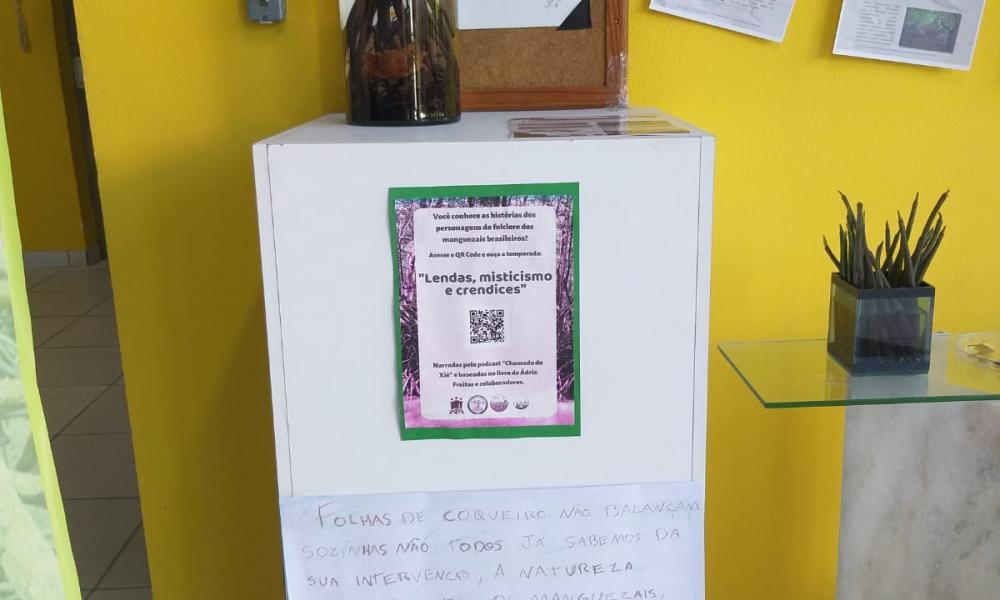 Você conhece as histórias dos
personagens do folclore dos
manguezais brasileiros?
Acesse o QR Code e ouça a temporada:
"Lendas, misticismo
e crendices"
Narradas pelo podcast "Chamado do
Xié" e baseadas no livro de Ádria
Freitas e colaboradores.
FOLHAS DE COQUEIRO NÃO BALANÇAM
SOZINHAS NÃO TODOS JÁ SABEMOS DA
SUA INTERVENÇÃO, A NATUREZA
MANGUEZAIS,